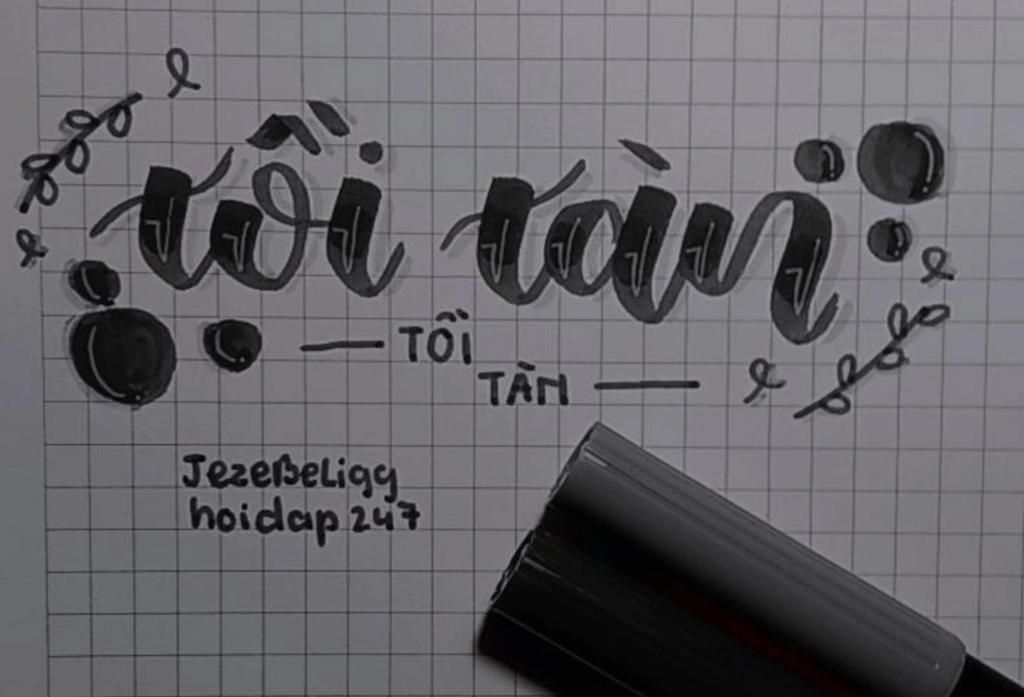 tồi tàn
TỒI
TÀN
JezeBeligg
hoidap 247